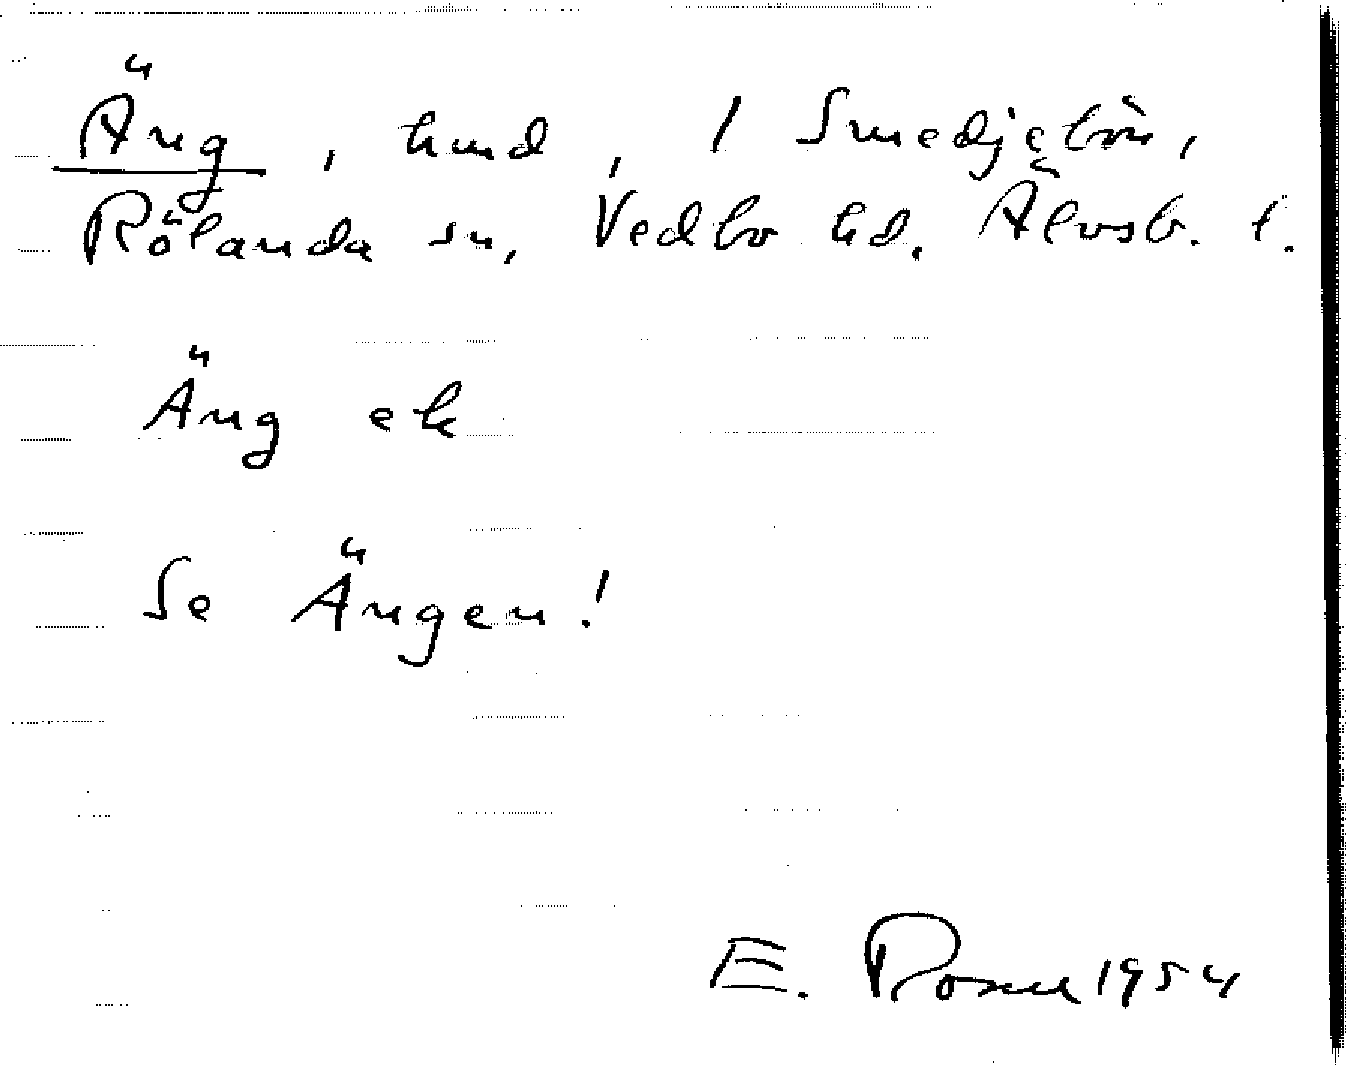 Äng, hmd, 1 Smedjebön,
Rölanda sn, Vedbo hd. Älvsb. l.
Äng ek
Se Ängen!
E. Rosell 1954